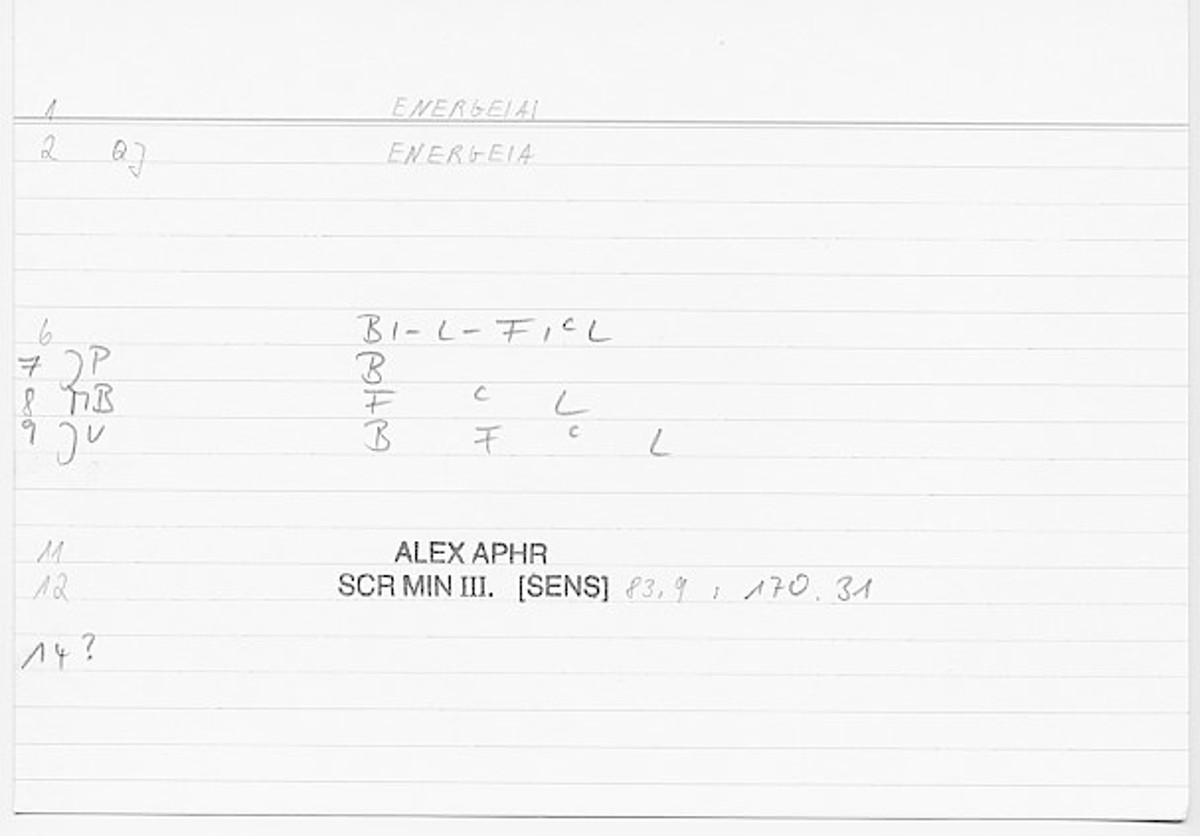 1 ENERGEIAI
2 QJ ENERGEIA
6 BI-L-F,ᶜL
7 JP B
8 B F c L
9 JV B F c L
11 ALEX APHR
12 SCR MIN III. [SENS] 83,9 , 170.31
14?